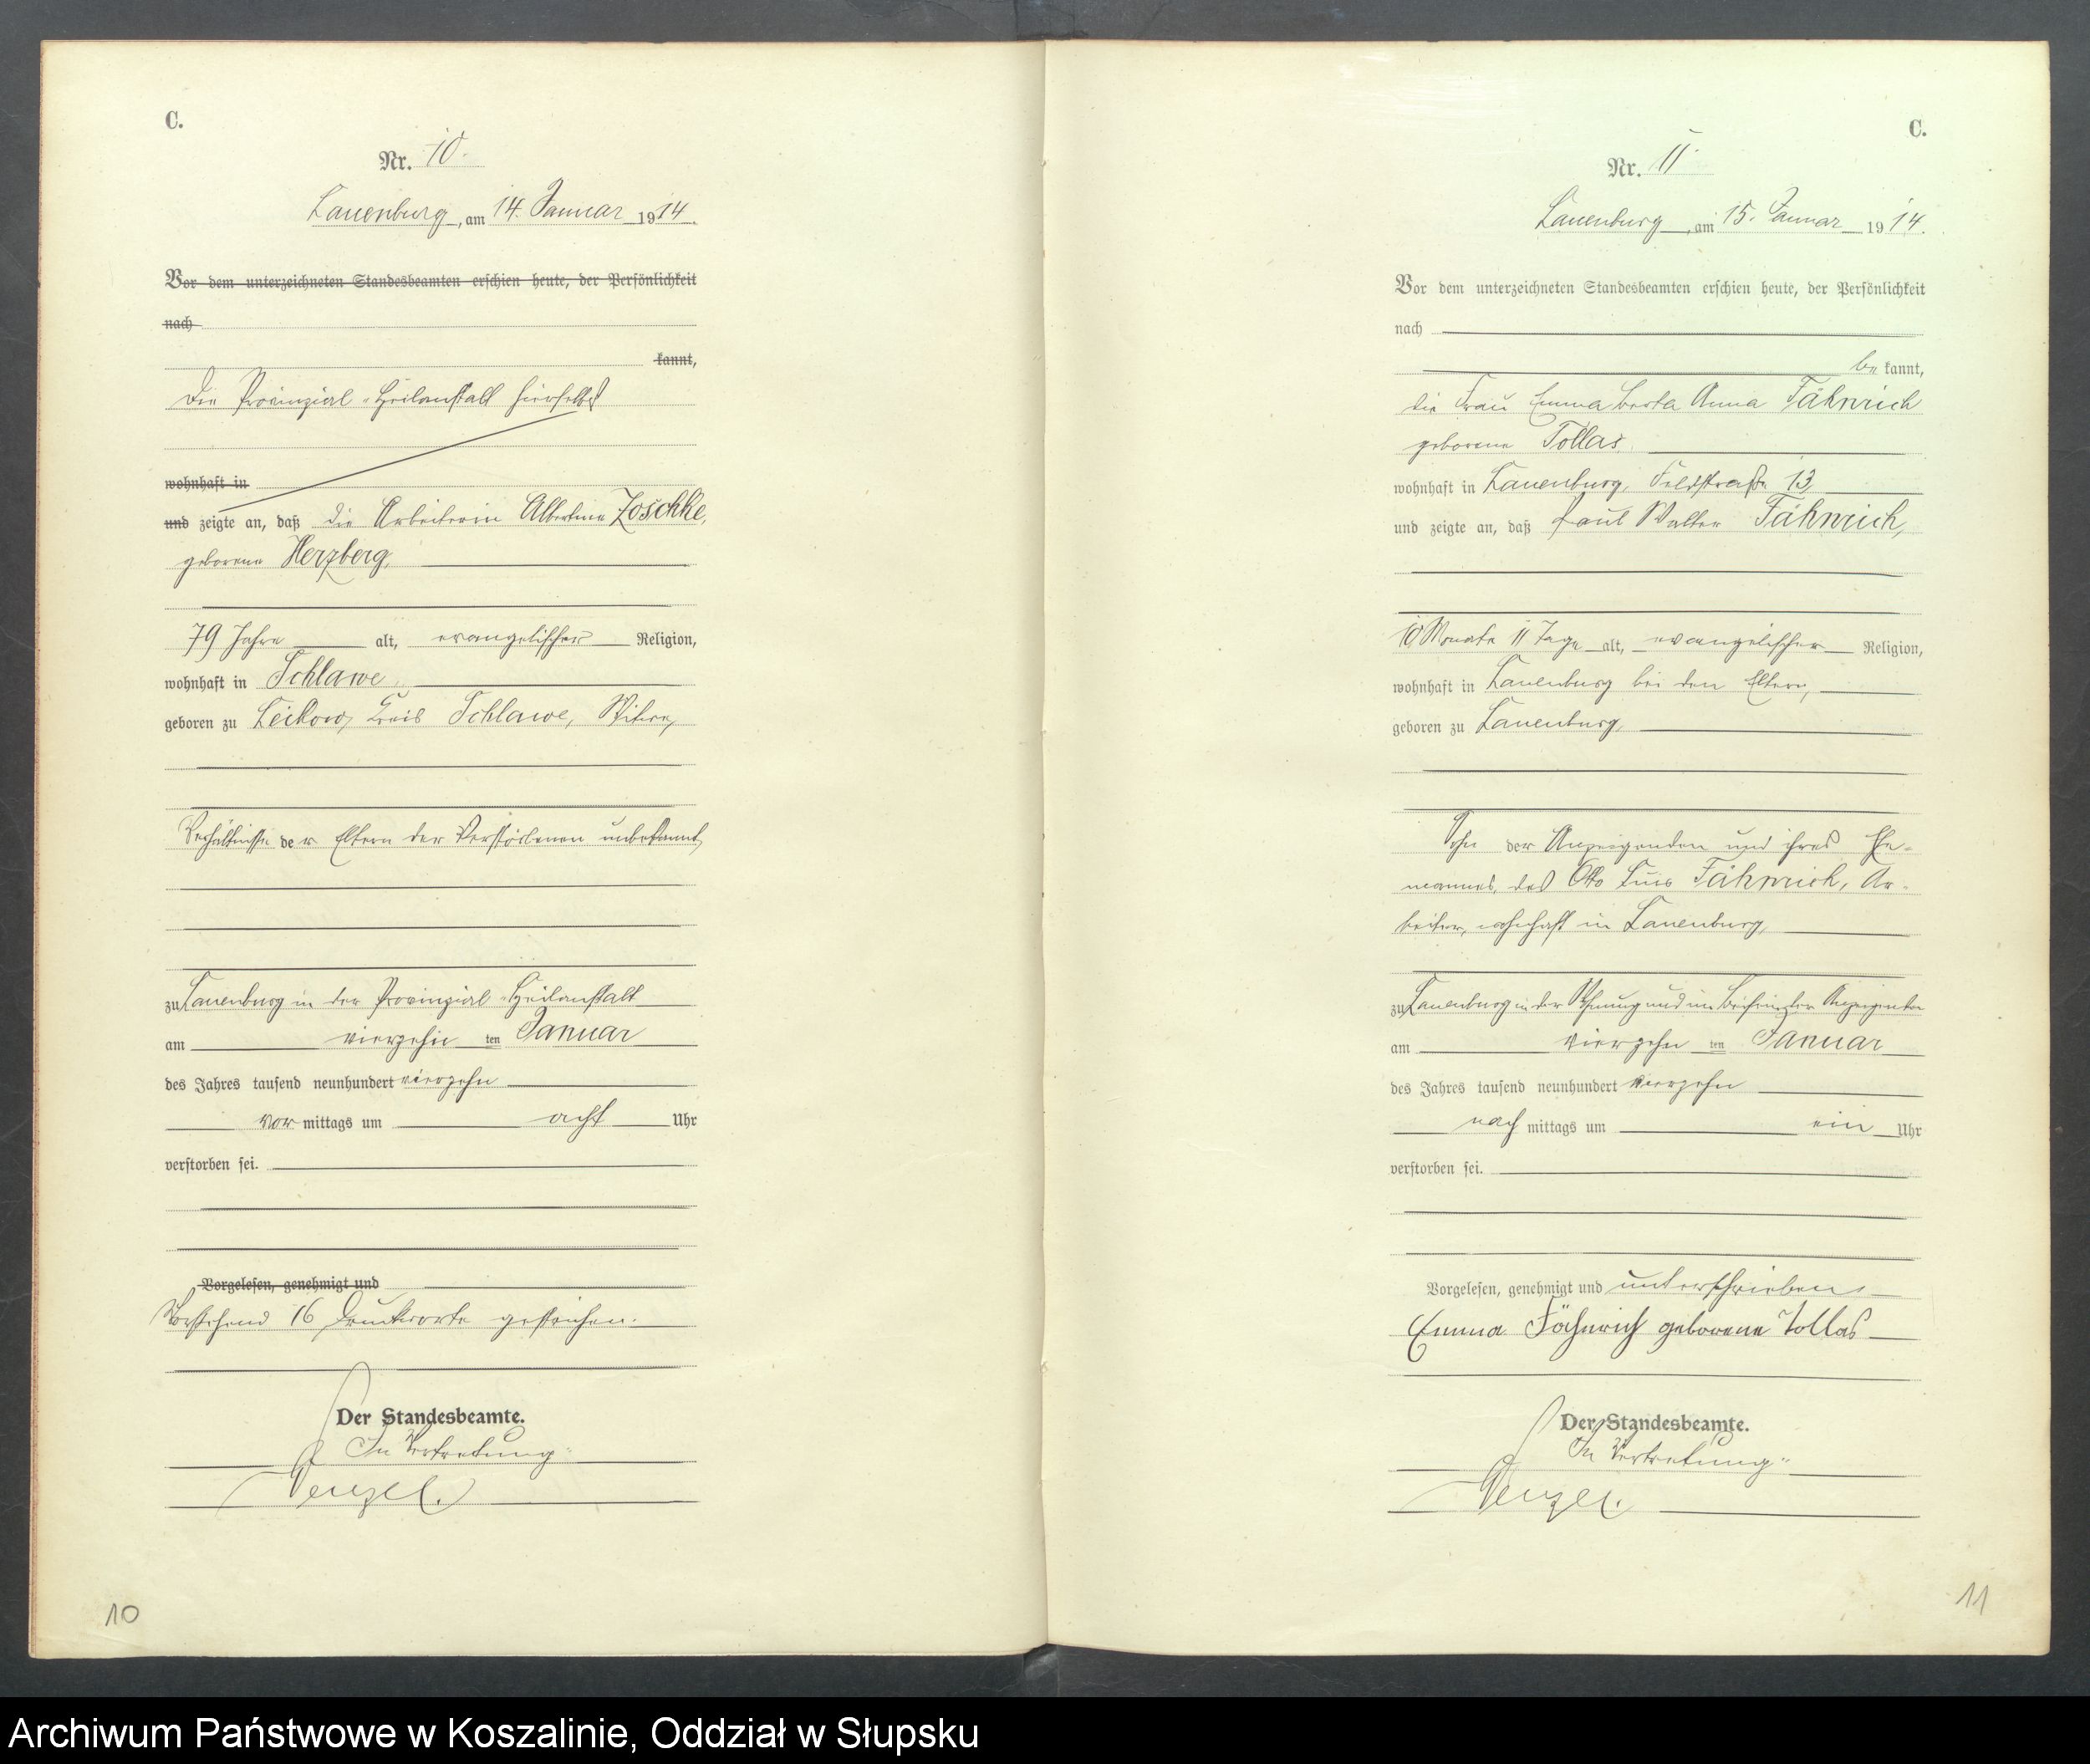 C.
Nr. 10.
Lauenburg, am 14. Januar 1914.
Vor dem unterzeichneten Standesbeamten erschien heute, der Persönlichkeit
nach
kannt,
Die Provinzial-Heilanstalt hierselbst
wohnhaft in
und zeigte an, daß die Arbeiterin Albertine Zoschke,
geborene Herzberg,
79 Jahre alt, evangelischer Religion,
wohnhaft in Schlawe,
geboren zu Leikow, Kreis Schlawe, Witwe,
Verhältnisse der Eltern der Verstorbenen unbekannt,
zu Lauenburg in der Provinzial-Heilanstalt
am vierzehn ten Januar
des Jahres tausend neunhundert vierzehn
vor mittags um acht Uhr
verstorben sei.
Vorgelesen, genehmigt und
Vorstehend 16 Druckworte gestrichen.
Der Standesbeamte.
In Vertretung:
Wenzel.
10
C.
Nr. 11.
Lauenburg, am 15. Januar 1914.
Vor dem unterzeichneten Standesbeamten erschien heute, der Persönlichkeit
nach
be kannt,
die Frau Emma Berta Anna Fähnrich
geborene Tollas,
wohnhaft in Lauenburg, Feldstraße 13,
und zeigte an, daß Paul Walter Fähnrich,
10 Monate 11 Tage alt, evangelischer Religion,
wohnhaft in Lauenburg bei den Eltern,
geboren zu Lauenburg,
Sohn der Anzeigenden und ihres Ehe-
mannes, des Otto Fähnrich, Ar-
beiter, wohnhaft in Lauenburg,
zu Lauenburg in der Wohnung und im Beisein der Anzeigenden
am vierzehn ten Januar
des Jahres tausend neunhundert vierzehn
nach mittags um ein Uhr
verstorben sei.
Vorgelesen, genehmigt und unterschrieben
Emma Fähnrich geborene Tollas
Der Standesbeamte.
In Vertretung:
Wenzel.
11
Archiwum Państwowe w Koszalinie, Oddział w Słupsku